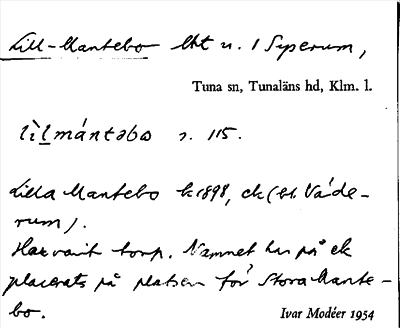 Lill-Mantebo lht u. 1 Syserum,
Tuna sn, Tunaläns hd, Klm. l.
lìlmántəbo s. 115.
Lilla Mantebo k 1898, ek (bl. Väde-
rum).
Har varit torp. Namnet har på ek
placerats på platsen för Stora Mante-
bo.
Ivar Modéer 1954